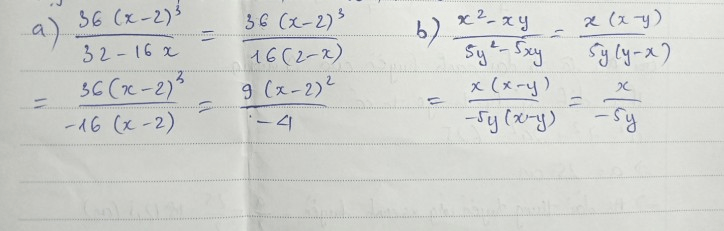 a) 36(x-2)³ / 32-16x = 36(x-2)³ / 16(2-x)
= 36(x-2)³ / -16(x-2) = 9(x-2)² / -4
b) x²-xy / 5y²-5xy = x(x-y) / 5y(y-x)
= x(x-y) / -5y(x-y) = x / -5y